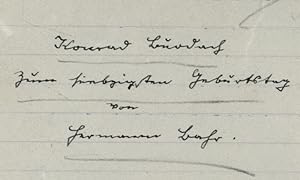 Konrad Burdach
Zum siebzigsten Geburtstag
von
Hermann Bahr.